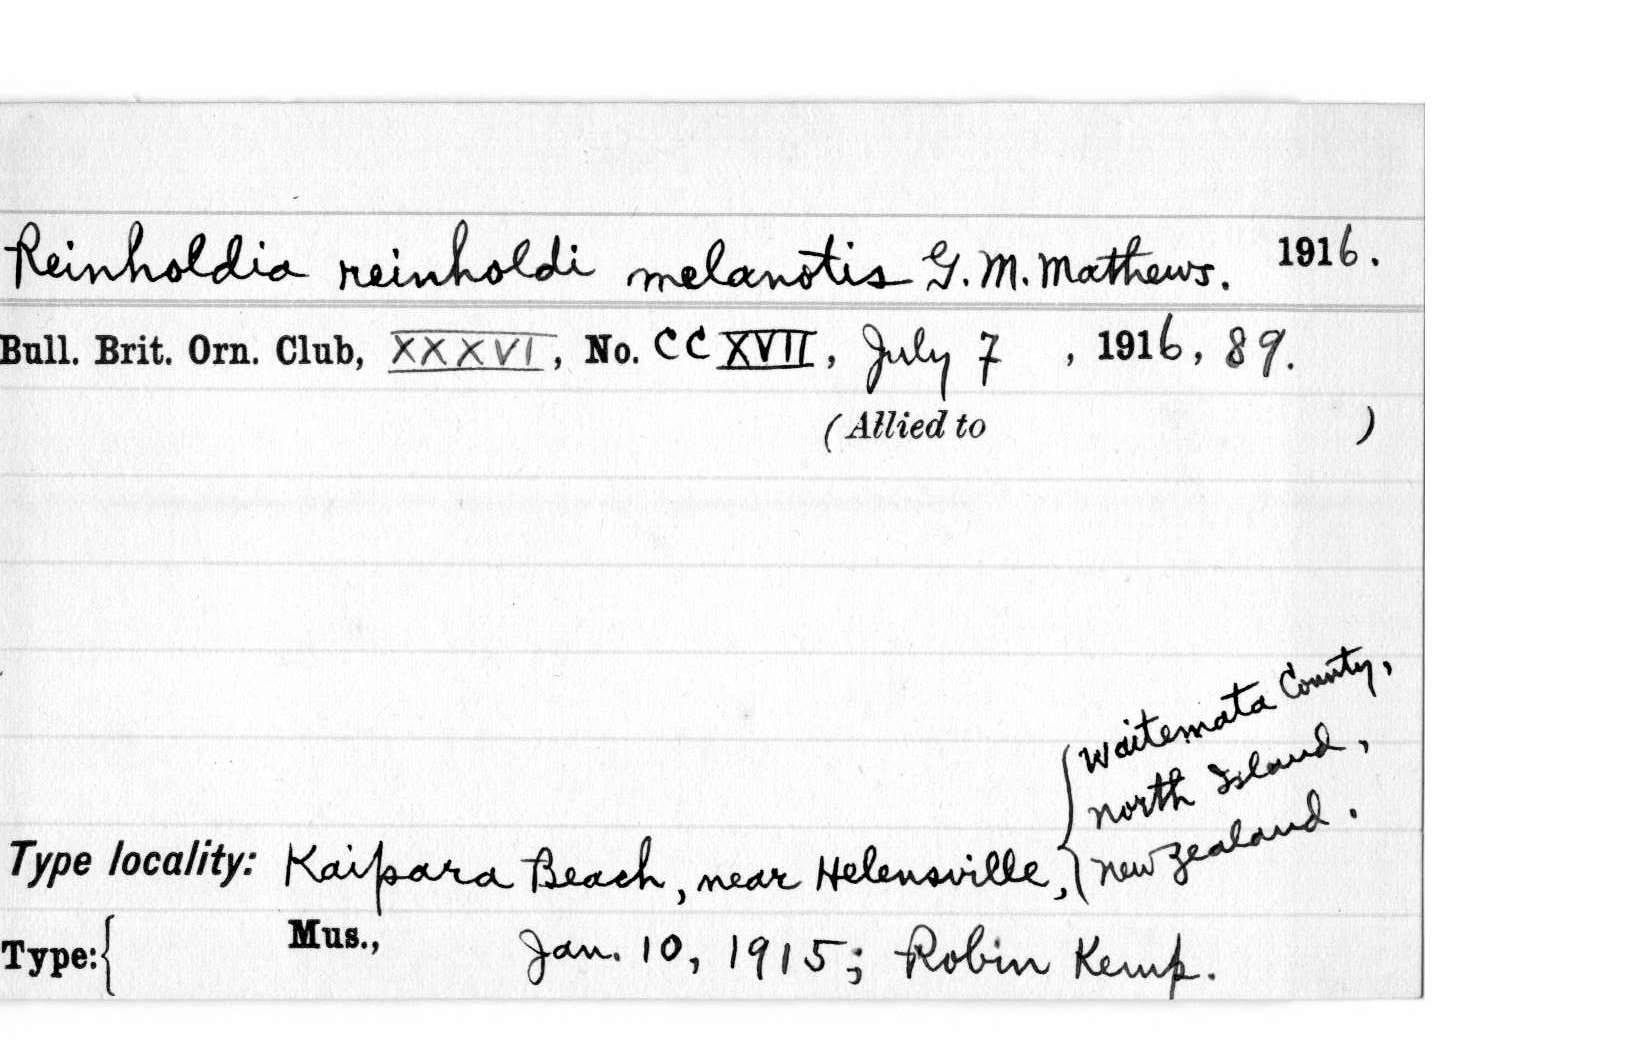 Reinholdia reinholdi melanotis G. M. Mathews. 1916.
Bull. Brit. Orn. Club, XXXVI, No. CCXVII, July 7, 1916, 89.
(Allied to )
Waitemata County,
North Island,
New Zealand.
Type locality: Kaipara Beach, near Helensville,
Type: Mus., Jan. 10, 1915; Robin Kemp.